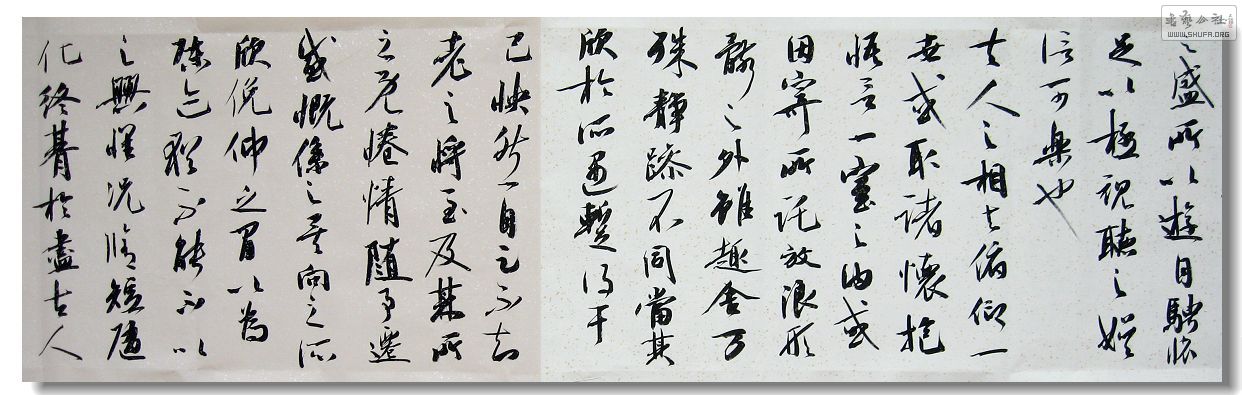 之盛所以遊目騁懷
足以極視聽之娛
信可樂也
夫人之相與俯仰一
世或取諸懷抱
悟言一室之內或
因寄所託放浪形
骸之外雖趣舍万
殊靜躁不同當其
欣於所遇暫得于
己怏然自足不知
老之將至及其所
之既惓情隨事遷
感慨係之矣向之所
欣俛仰之間以為
陳迹猶不能不以
之興懷況脩短隨
化終朞於盡古人
書藝公社
WWW.SHUFA.ORG